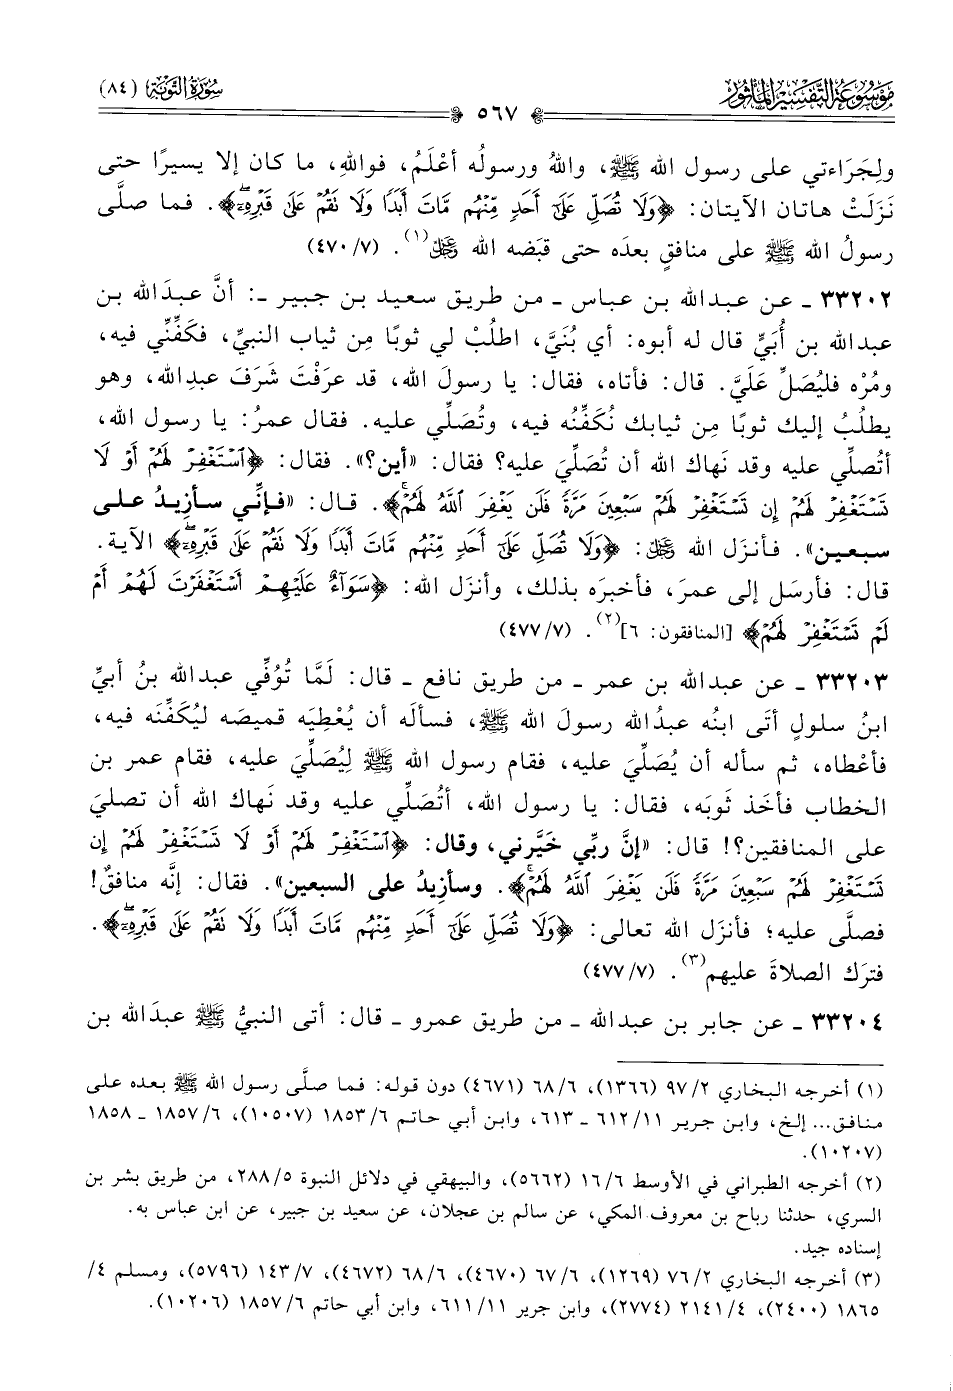 موسوعة التفسير المأثور
سورة التوبة (٨٤)
٥٦٧
ولِجَرَاءتي على رسول الله ﷺ، واللهُ ورسولُه أعْلَمُ، فواللهِ، ما كان إلا يسيرًا حتى
نَزَلَتْ هاتان الآيتان: ﴿وَلَا تُصَلِّ عَلَىٰٓ أَحَدٖ مِّنۡهُم مَّاتَ أَبَدٗا وَلَا تَقُمۡ عَلَىٰ قَبۡرِهِۦٓۖ﴾. فما صلَّى
رسولُ الله ﷺ على منافقٍ بعدَه حتى قبَضه الله ﷿(١). (٧/ ٤٧٠)
٣٣٢٠٢ ـ عن عبدالله بن عباس ـ من طريق سعيد بن جبير ـ: أنَّ عبدَالله بن
عبدالله بن أُبَيٍّ قال له أبوه: أي بُنَيَّ، اطلُبْ لي ثوبًا مِن ثياب النبيِّ، فكَفِّنِّي فيه،
ومُرْه فليُصَلِّ عَلَيَّ. قال: فأتاه، فقال: يا رسولَ الله، قد عرَفْتَ شَرَفَ عبدِالله، وهو
يطلُبُ إليك ثوبًا مِن ثيابك نُكَفِّنُه فيه، وتُصَلِّي عليه. فقال عمرُ: يا رسول الله،
أتُصلِّي عليه وقد نَهاك الله أن تُصَلِّيَ عليه؟ فقال: «أين؟». فقال: ﴿ٱسۡتَغۡفِرۡ لَهُمۡ أَوۡ لَا
تَسۡتَغۡفِرۡ لَهُمۡ إِن تَسۡتَغۡفِرۡ لَهُمۡ سَبۡعِينَ مَرَّةٗ فَلَن يَغۡفِرَ ٱللَّهُ لَهُمۡۚ﴾. قال: «فإنِّي سأزيدُ على
سبعين». فأنزَل الله ﷿: ﴿وَلَا تُصَلِّ عَلَىٰٓ أَحَدٖ مِّنۡهُم مَّاتَ أَبَدٗا وَلَا تَقُمۡ عَلَىٰ قَبۡرِهِۦٓۖ﴾ الآية.
قال: فأرسَل إلى عمرَ، فأخبرَه بذلك، وأنزَل الله: ﴿سَوَآءٌ عَلَيۡهِمۡ أَسۡتَغۡفَرۡتَ لَهُمۡ أَمۡ
لَمۡ تَسۡتَغۡفِرۡ لَهُمۡ﴾ [المنافقون: ٦](٢). (٧/ ٤٧٧)
٣٣٢٠٣ ـ عن عبدالله بن عمر ـ من طريق نافع ـ قال: لَمَّا تُوُفِّي عبدالله بنُ أبيٍّ
ابنُ سلولٍ أتَى ابنُه عبدُالله رسولَ الله ﷺ، فسألَه أن يُعْطِيَه قميصَه ليُكَفِّنَه فيه،
فأعْطاه، ثم سأله أن يُصَلِّيَ عليه، فقام رسول الله ﷺ لِيُصَلِّيَ عليه، فقام عمر بن
الخطاب فأخَذ ثَوبَه، فقال: يا رسول الله، أتُصَلِّي عليه وقد نَهاك الله أن تصليَ
على المنافقين؟! قال: «إنَّ ربِّي خَيَّرني، وقال: ﴿ٱسۡتَغۡفِرۡ لَهُمۡ أَوۡ لَا تَسۡتَغۡفِرۡ لَهُمۡ إِن
تَسۡتَغۡفِرۡ لَهُمۡ سَبۡعِينَ مَرَّةٗ فَلَن يَغۡفِرَ ٱللَّهُ لَهُمۡۚ﴾. وسأزيدُ على السبعين». فقال: إنَّه منافقٌ!
فصلَّى عليه؛ فأنزَل الله تعالى: ﴿وَلَا تُصَلِّ عَلَىٰٓ أَحَدٖ مِّنۡهُم مَّاتَ أَبَدٗا وَلَا تَقُمۡ عَلَىٰ قَبۡرِهِۦٓۖ﴾.
فترَك الصلاةَ عليهم(٣). (٧/ ٤٧٧)
٣٣٢٠٤ ـ عن جابر بن عبدالله ـ من طريق عمرو ـ قال: أتى النبيُّ ﷺ عبدَالله بن
(١) أخرجه البخاري ٢/ ٩٧ (١٣٦٦)، ٦/ ٦٨ (٤٦٧١) دون قوله: فما صلَّى رسول الله ﷺ بعده على
منافق... إلخ، وابن جرير ١١/ ٦١٢ ـ ٦١٣، وابن أبي حاتم ٦/ ١٨٥٣ (١٠٥٠٧)، ٦/ ١٨٥٧ ـ ١٨٥٨
(١٠٢٠٧).
(٢) أخرجه الطبراني في الأوسط ٦/ ١٦ (٥٦٦٢)، والبيهقي في دلائل النبوة ٥/ ٢٨٨، من طريق بشر بن
السري، حدثنا رباح بن معروف المكي، عن سالم بن عجلان، عن سعيد بن جبير، عن ابن عباس به.
إسناده جيد.
(٣) أخرجه البخاري ٢/ ٧٦ (١٢٦٩)، ٦/ ٦٧ (٤٦٧٠)، ٦/ ٦٨ (٤٦٧٢)، ٧/ ١٤٣ (٥٧٩٦)، ومسلم ٤/
١٨٦٥ (٢٤٠٠)، ٤/ ٢١٤١ (٢٧٧٤)، وابن جرير ١١/ ٦١١، وابن أبي حاتم ٦/ ١٨٥٧ (١٠٢٠٦).